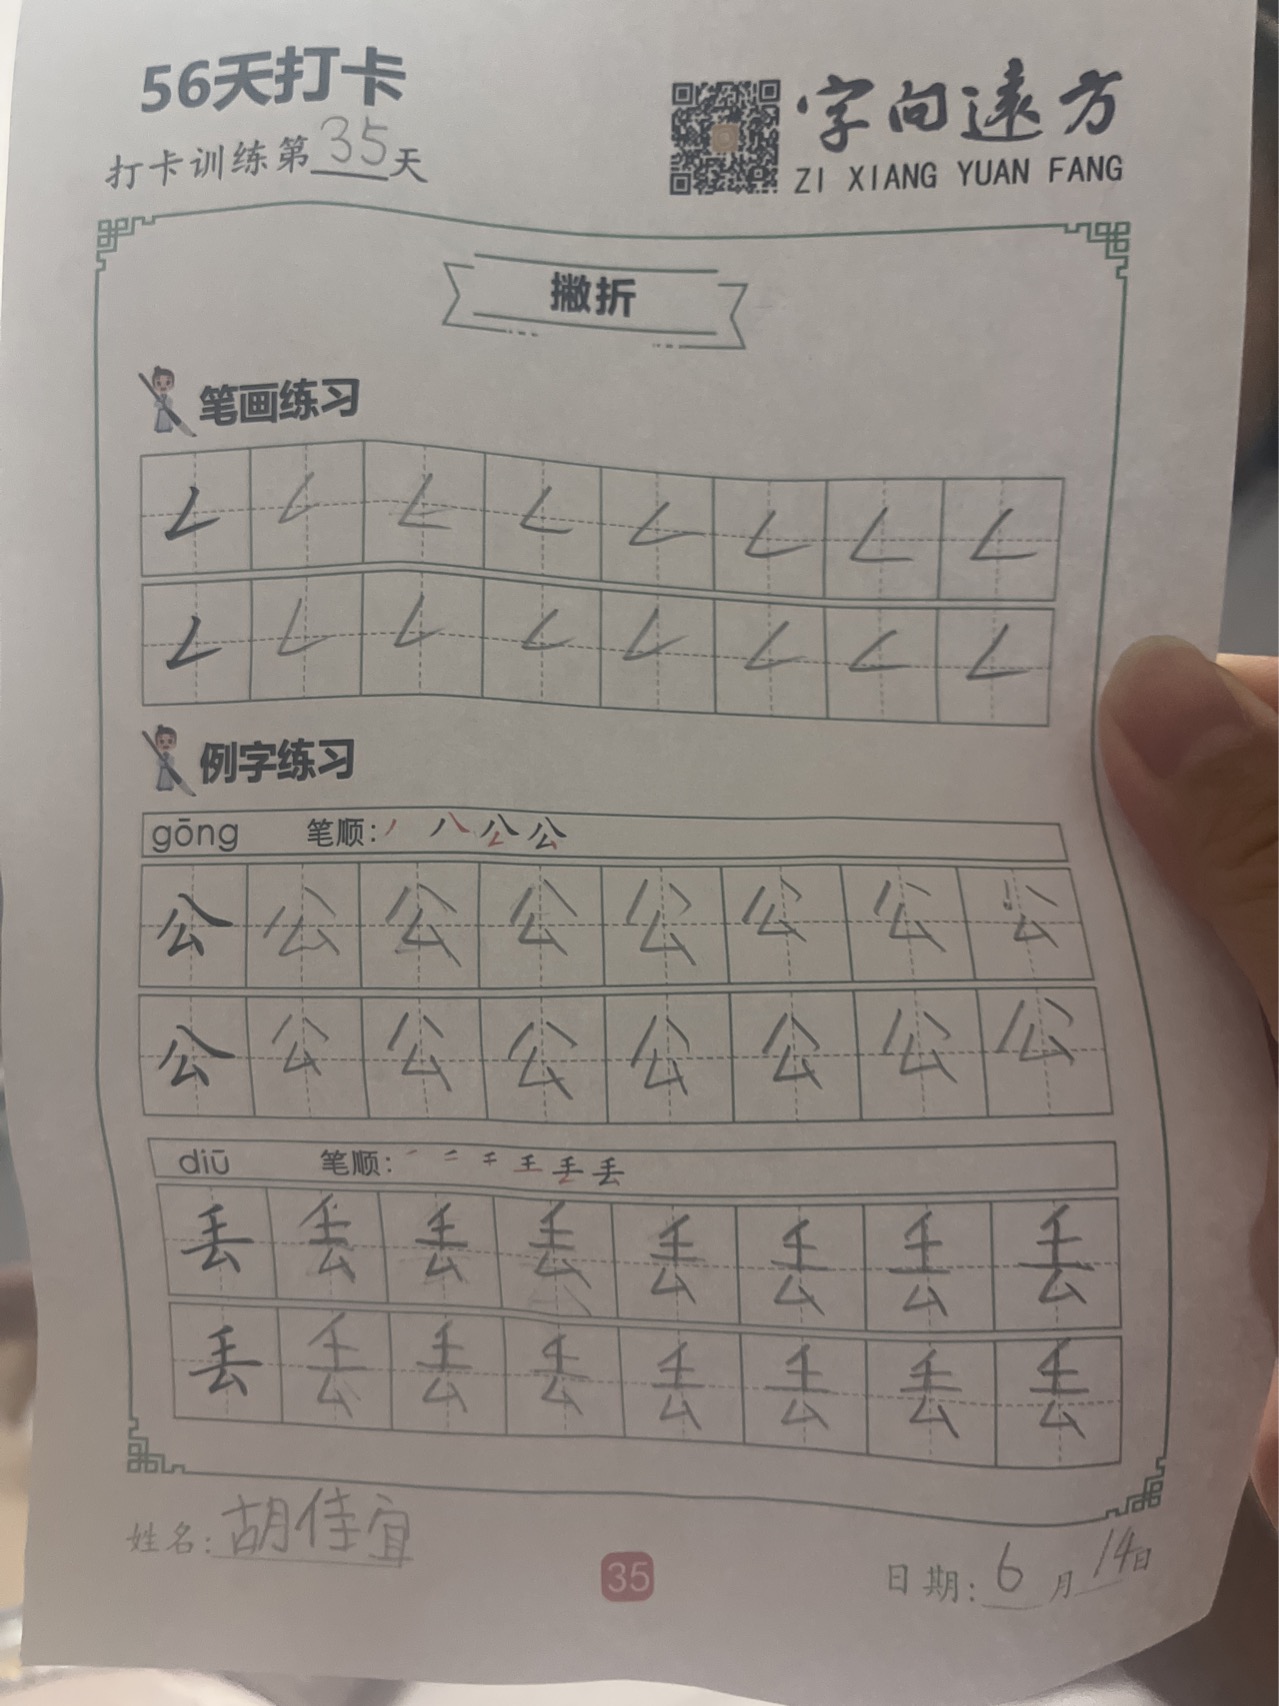 56天打卡
打卡训练第35天
字向遠方
ZI XIANG YUAN FANG
撇折
笔画练习
𠃋 𠃋 𠃋 𠃋 𠃋 𠃋 𠃋 𠃋
𠃋 𠃋 𠃋 𠃋 𠃋 𠃋 𠃋 𠃋
例字练习
gōng 笔顺: 丿 八 公 公
公 公 公 公 公 公 公 公
公 公 公 公 公 公 公 公
diū 笔顺: 一 二 千 王 丢 丢
丢 丢 丢 丢 丢 丢 丢 丢
丢 丢 丢 丢 丢 丢 丢 丢
姓名: 胡佳宜
35
日期: 6月14日